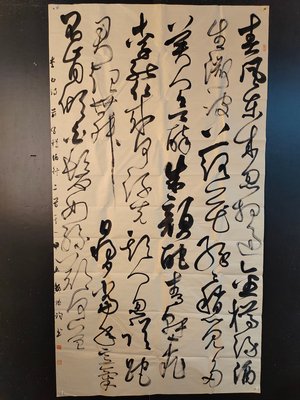 春風東來忽相過金樽綠酒
生微波落花紛紛稍覺多
美人欲醉朱顏酡青軒桃
李能幾何流光欺人忽蹉跎
君起舞日西夕當年意氣
不肯傾白髮如絲歎何益
李白詩前有樽酒行二首